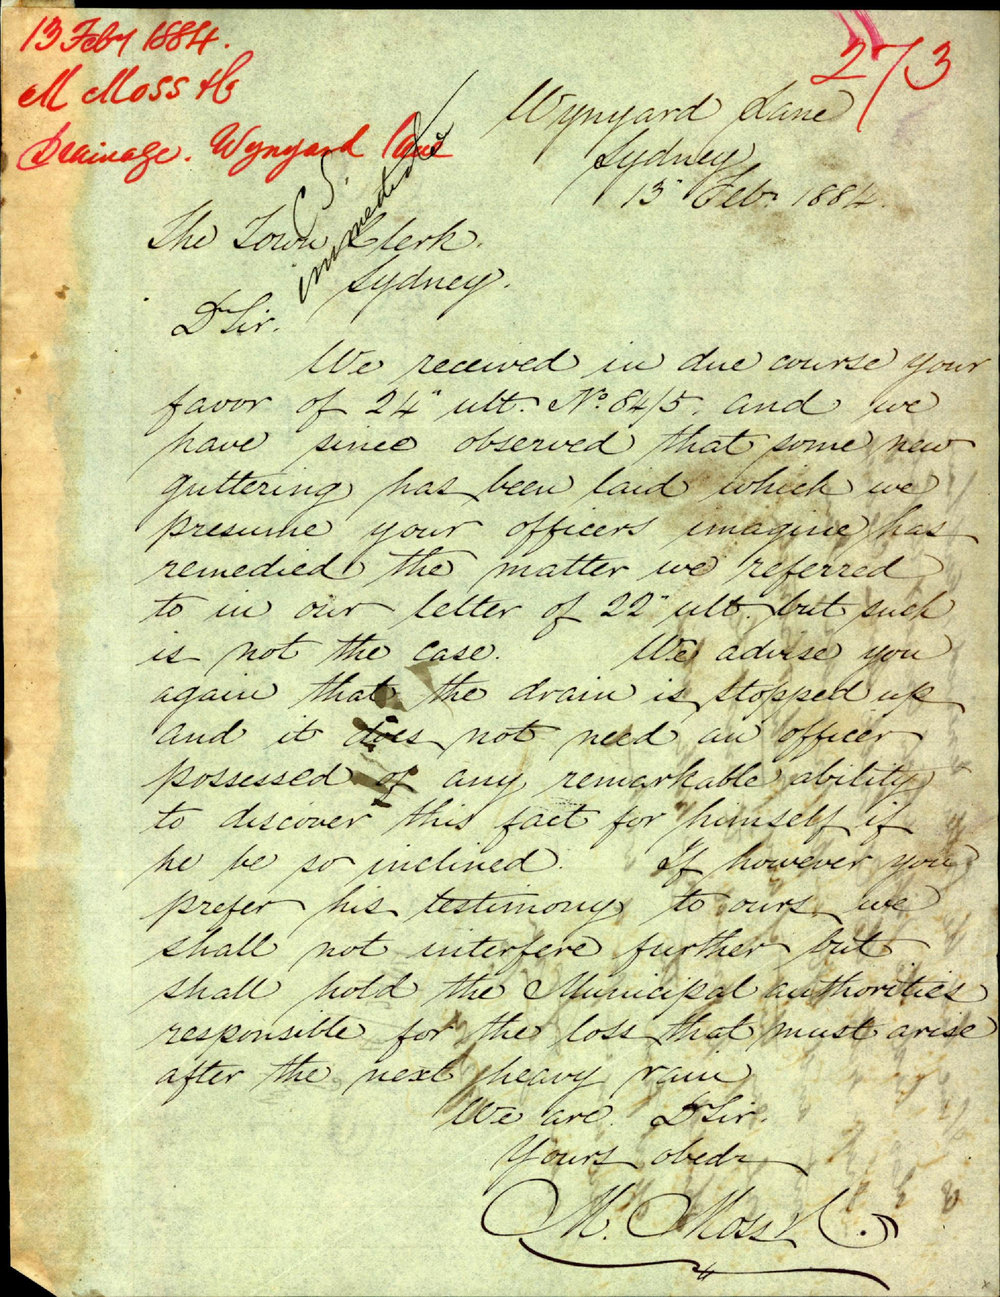 13 Feby 1884.
M Moss & Co
Drainage. Wynyard Lane
273
Wynyard Lane
Sydney
13" Feb. 1884.
C S.
immediate
The Town Clerk.
Sydney.
Dr Sir.
We received in due course your
favor of 24" ult. No. 84/5. and we
have since observed that some new
guttering has been laid which we
presume your officers imagine has
remedied the matter we referred
to in our letter of 22" ult. but such
is not the case. We advise you
again that the drain is stopped up
and it does not need an officer
possessed of any remarkable ability
to discover this fact for himself if
he be so inclined. If however you
prefer his testimony to ours we
shall not interfere further but
shall hold the Municipal authorities
responsible for the loss that must arise
after the next heavy rain
We are. Dr Sir.
Yours obedt
M. Moss & Co.